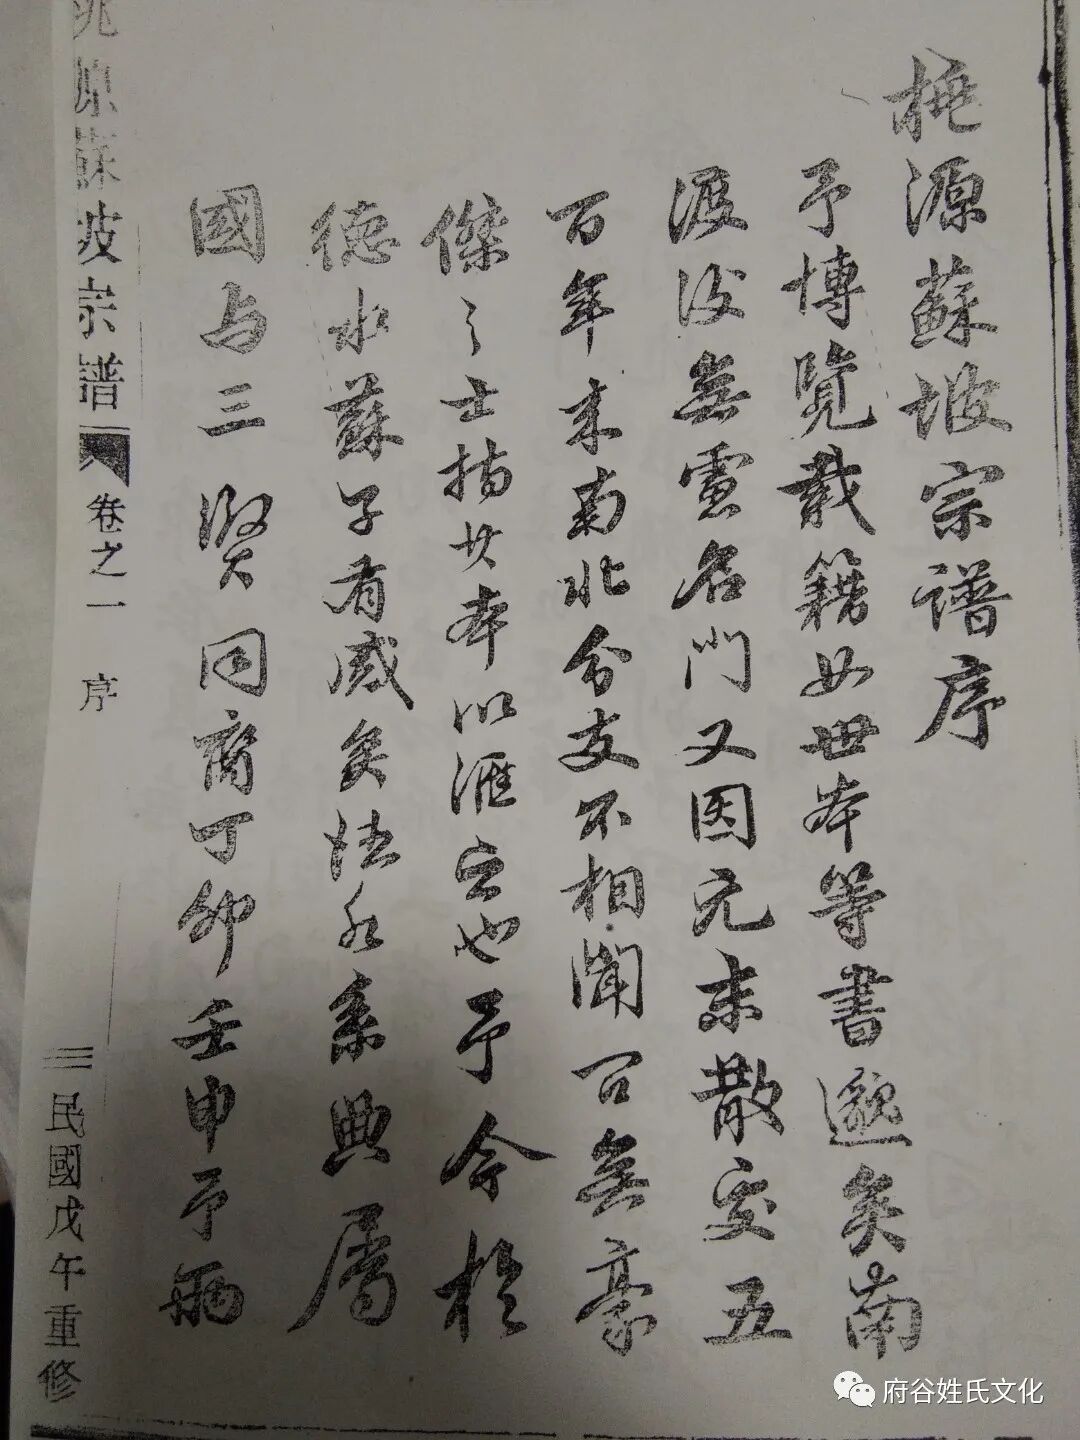 桃源蘇坡宗譜序
予博覽載籍如世本等書邈矣南
渡後無慮名門又因元末散交五
百年来南北分支不相聞召無豪
傑之士揹廿本以滙宗也予今於
德水蘇子有感矣恬水系典屬
國与三賢同裔丁卯壬申予兩
桃源蘇坡宗譜 卷之一 序 民國戊午重修
府谷姓氏文化